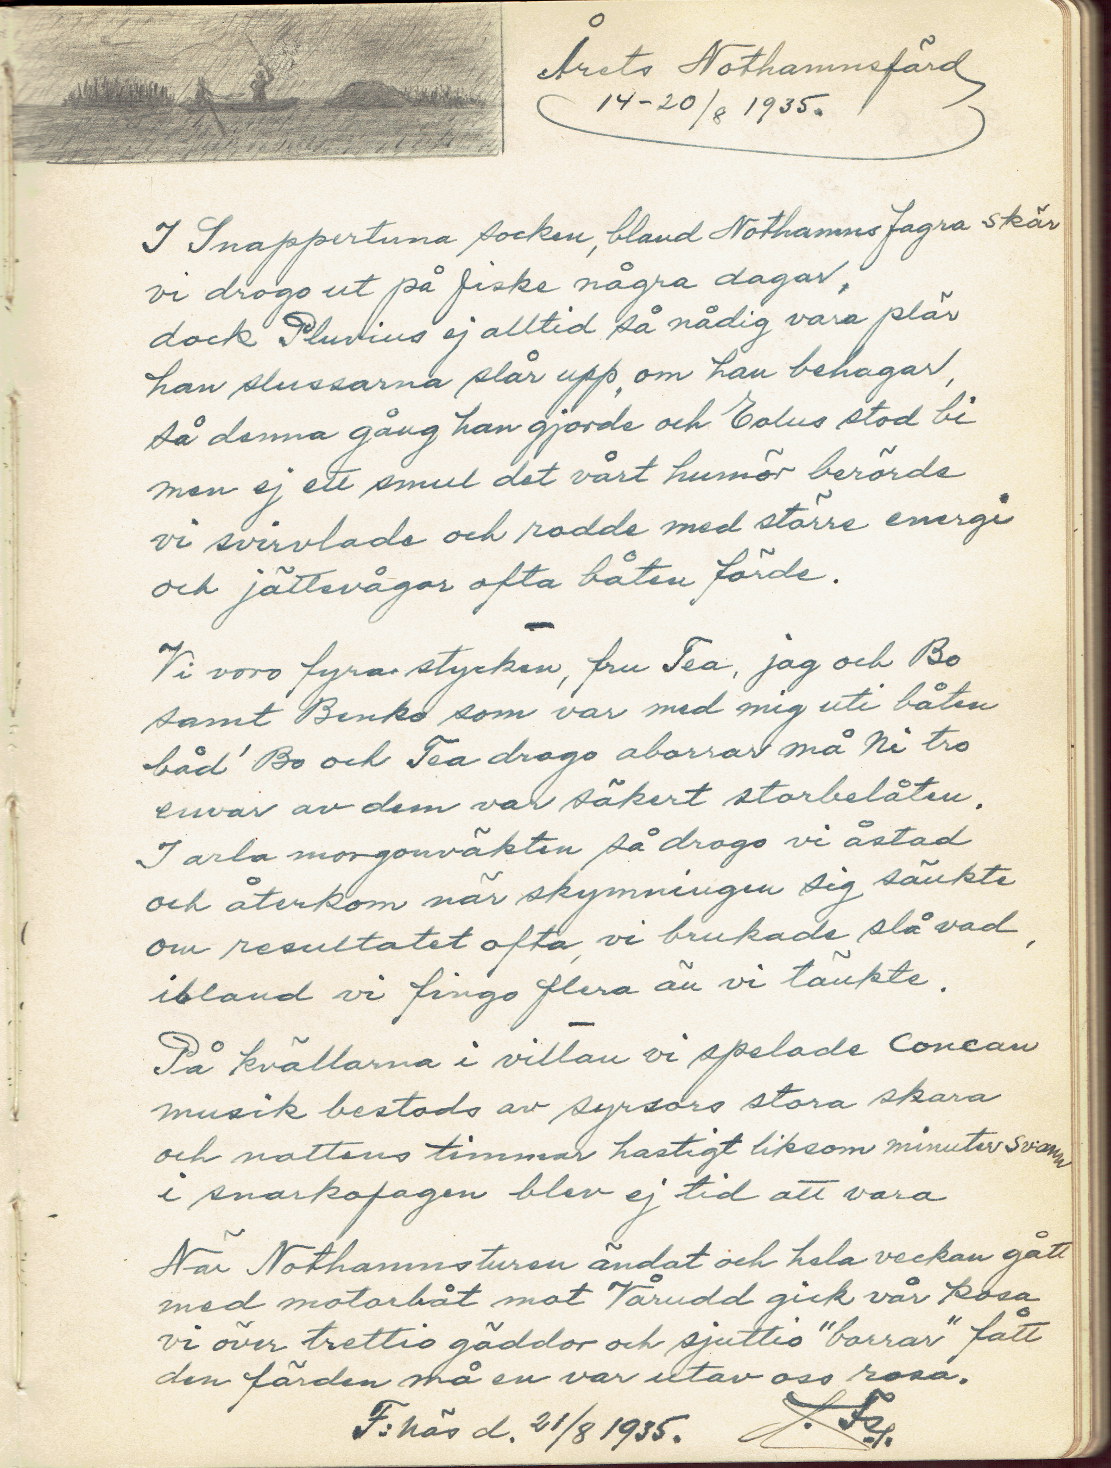 Årets Nothamnsfärd
14-20/8 1935.
I Snappertuna socken, bland Nothamns fagra skär
vi drogo ut på fiske några dagar,
dock Pluvius ej alltid så nådig vara plär
han slussarna slår upp, om han behagar,
så denna gång han gjorde och Eolus stod bi
men ej ett smul det vårt humör berörde
vi svirvlade och rodde med större energi
och jättevågor ofta båten förde.
—
Vi voro fyra stycken, fru Tea, jag och Bo
samt Benko som var med mig uti båten
båd' Bo och Tea drogo aborrar må Ni tro
envar av dem var säkert storbelåten.
I arla morgonväkten så drogo vi åstad
och återkom när skymningen sig sänkte
om resultatet ofta, vi brukade slå vad,
ibland vi fingo flera än vi tänkte.
—
På kvällarna i villan vi spelade Concan
musik bestods av syrsors stora skara
och nattens timmar hastigt liksom minuter svann
i snarkofagen blev ej tid att vara
När Nothamnsturen ändat och hela veckan gått
med motorbåt mot Vårudd gick vår kosa
vi över trettio gäddor och sjuttio "borrar" fått
den färden må en var utav oss rosa.
F:näs d. 21/8 1935.